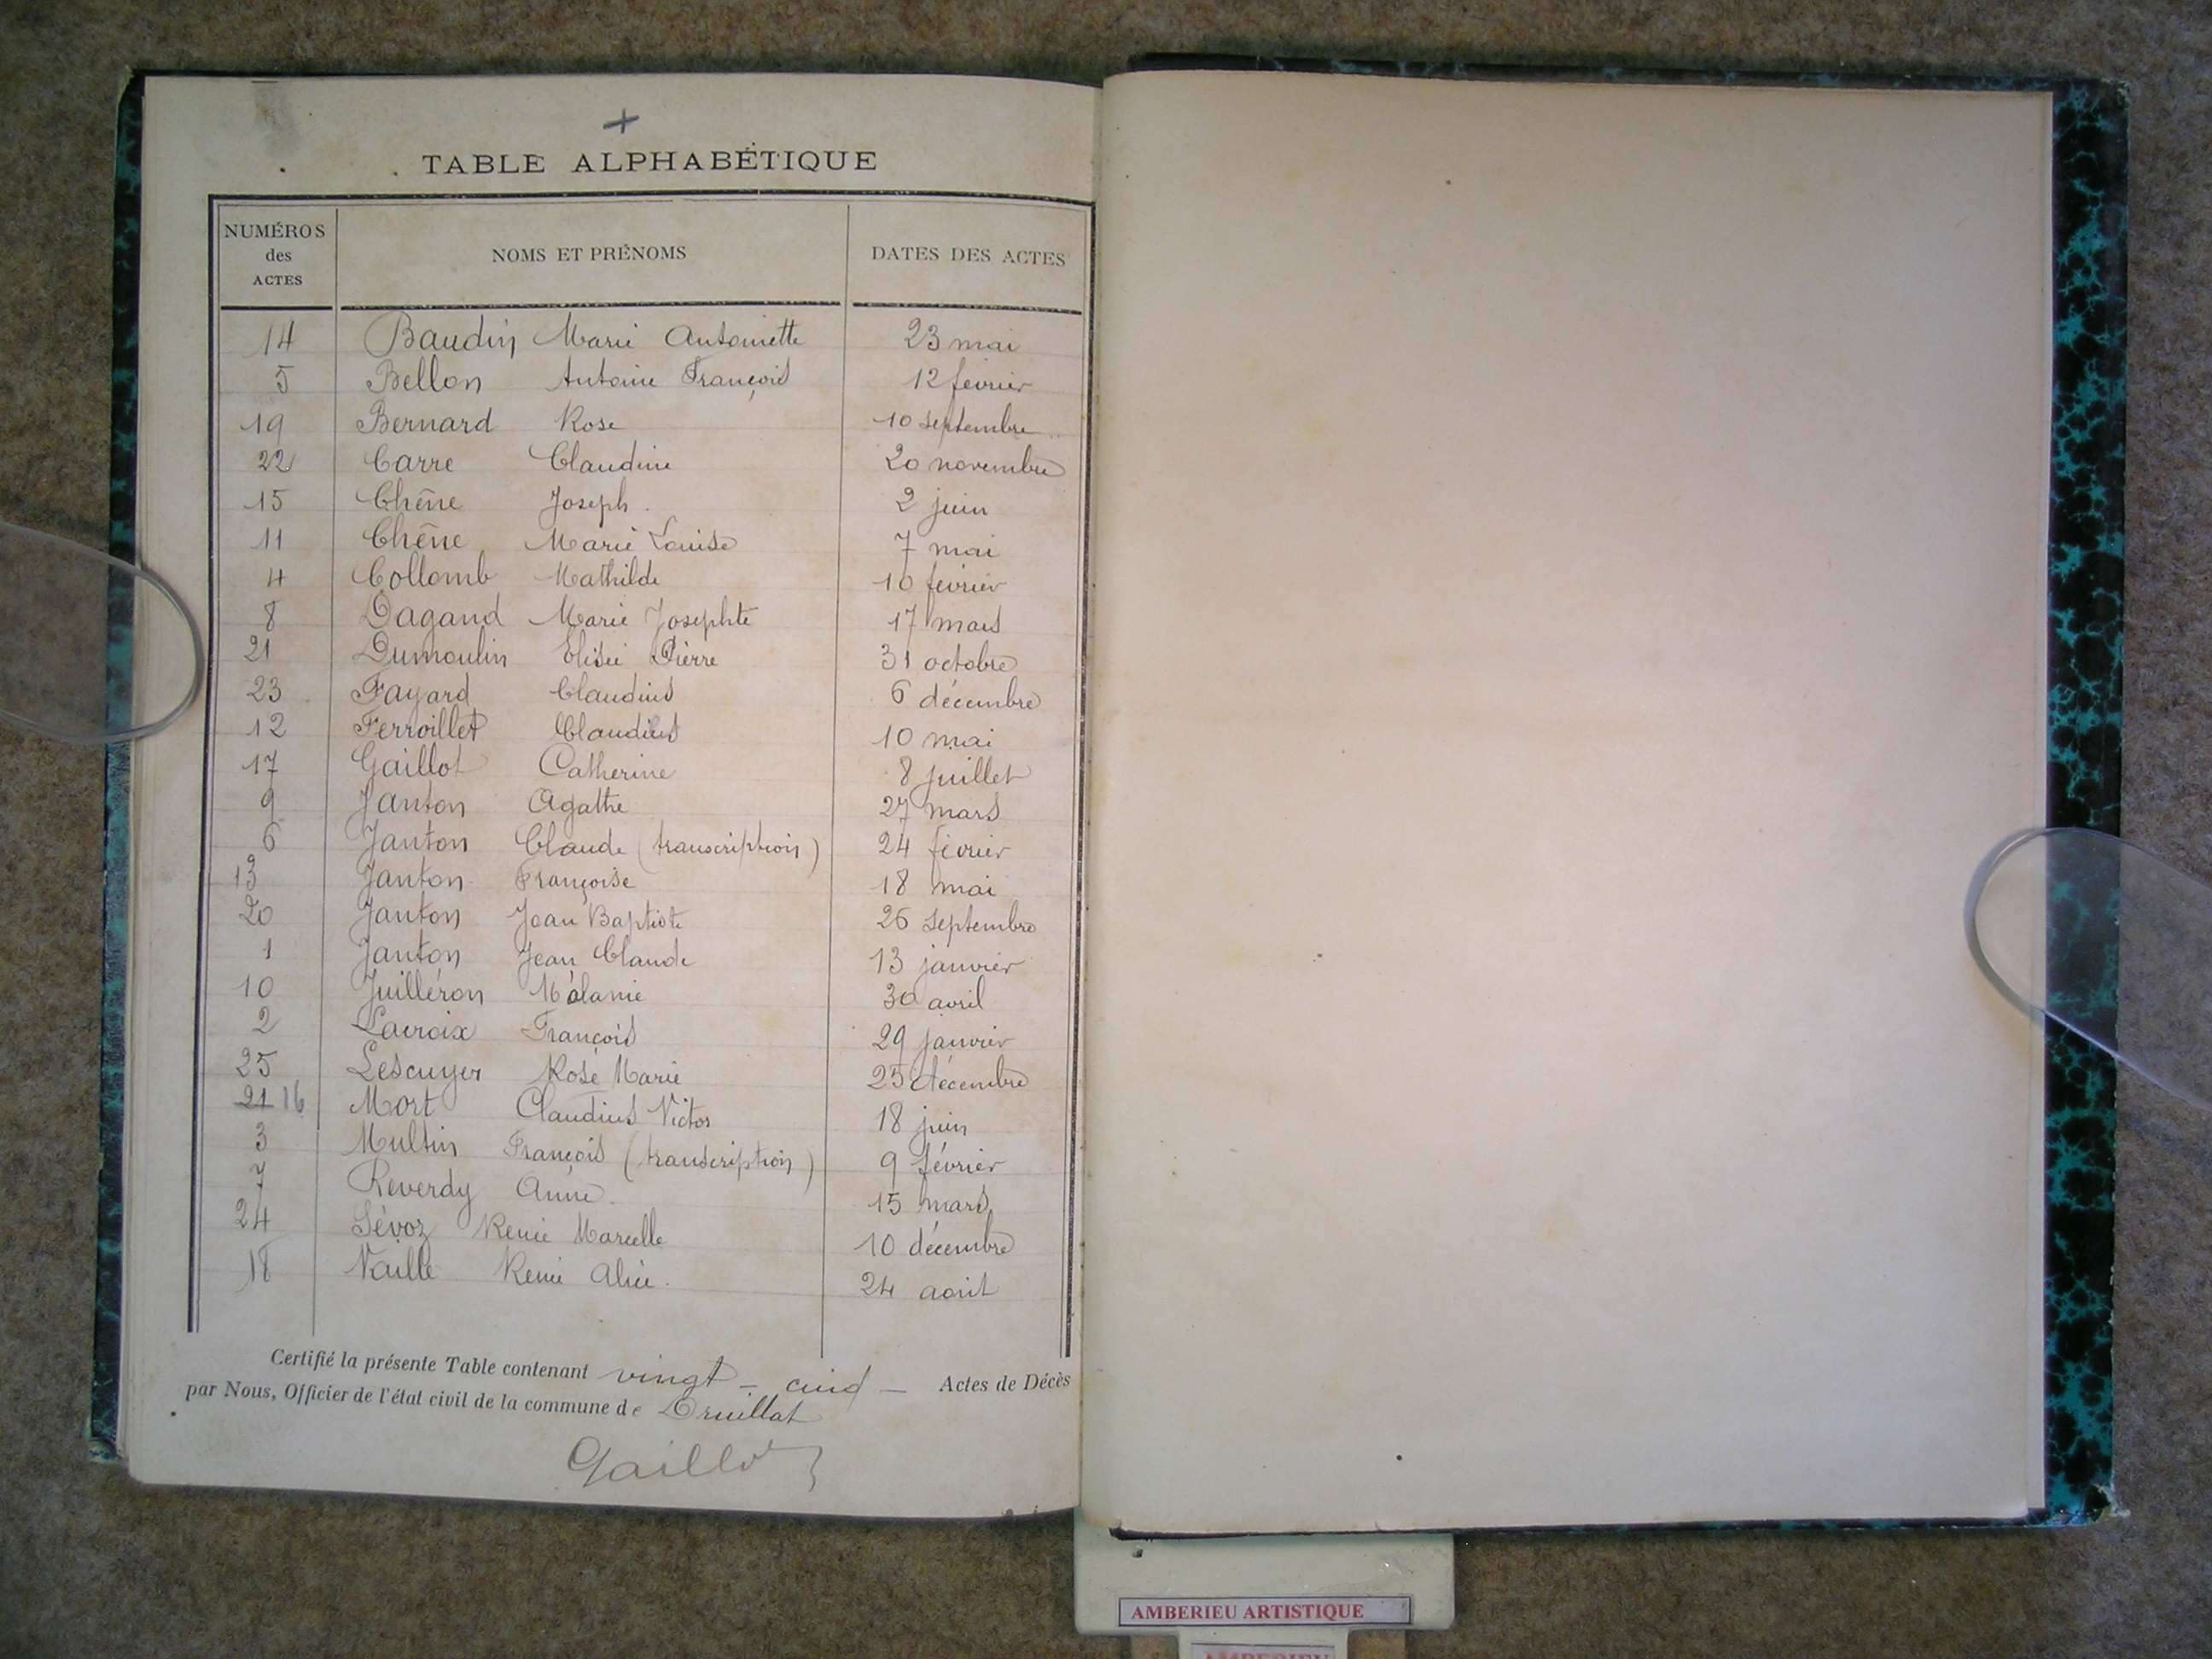 +
TABLE ALPHABÉTIQUE
NUMÉROS
des
ACTES
NOMS ET PRÉNOMS
DATES DES ACTES
14 Baudin Marie Antoinette 23 mai
5 Bellon Antoine François 12 février
19 Bernard Rose 10 septembre
22 Carre Claudine 20 novembre
15 Chêne Joseph 2 juin
11 Chêne Marie Louise 7 mai
4 Collomb Mathilde 10 février
8 Dagand Marie Josephte 17 mars
21 Dumoulin Elisée Pierre 31 octobre
23 Fayard Claudius 6 décembre
12 Ferroillet Claudius 10 mai
17 Gaillot Catherine 8 juillet
9 Janton Agathe 27 mars
6 Janton Claude (transcription) 24 février
13 Janton Françoise 18 mai
20 Janton Jean Baptiste 26 septembre
1 Janton Jean Claude 13 janvier
10 Juilléron Mélanie 30 avril
2 Lacroix François 29 janvier
25 Lescuyer Rose Marie 25 décembre
21 16 Mort Claudius Victor 18 juin
3 Multin François (transcription) 9 février
7 Reverdy Anne 15 mars
24 Sévoz Renée Marcelle 10 décembre
18 Vaille René Alice 24 août
Certifié la présente Table contenant vingt - cinq - Actes de Décès
par Nous, Officier de l'état civil de la commune de Druillat
Gaillot
AMBERIEU ARTISTIQUE
AMBERIEU